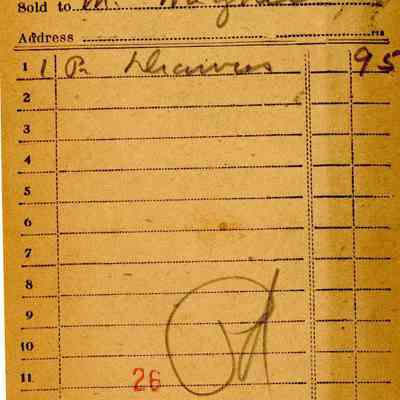 Sold to M.
Address
1 1 Pr Drawers 95
2
3
4
5
6
7
8
9
10
11
26